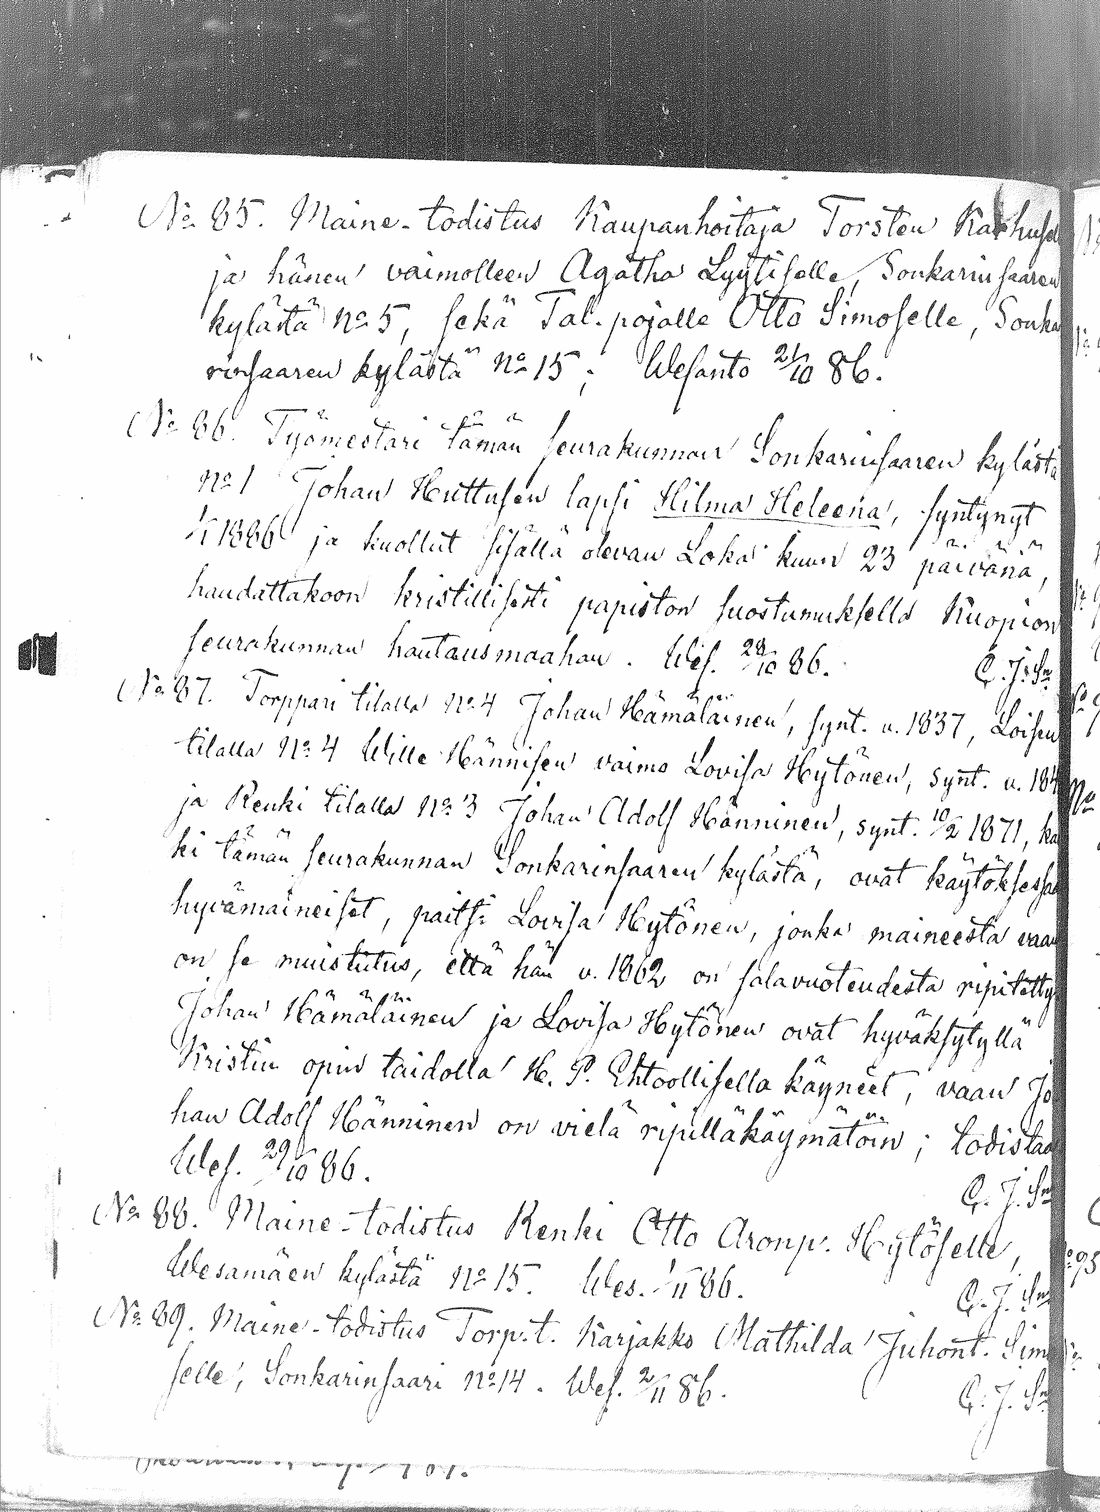 No 85. Maine-todistus Kaupanhoitaja Torsten Karhuse
ja hänen vaimolleen Agatha Lyytiselle, Sonkarinsaaren
kylästä no 5, sekä Tal. pojalle Otto Simoselle, Sonka
rinsaaren kylästä no 15; Wesanto 21/10 86.
No 86. Työmestari tämän seurakunnan Sonkarinsaaren kylästä
no 1 Johan Huttusen lapsi Hilma Heleena, syntynyt
1886 ja kuollut sisällä olevan Loka kuun 23 päivänä,
haudattakoon kristillisesti papiston suostumuksella Kuopion
seurakunnan hautausmaahan. Wes. 28/10 86.
C. J. Sn
No 87. Torppari tilalla no 4 Johan Hämäläinen, synt. v. 1837, Loisen
tilalla No 4 Wille Hännisen vaimo Lovisa Hytönen, synt. v. 184
ja Renki tilalla no 3 Johan Adolf Hänninen, synt. 10/2 1871, ka
ki tämän seurakunnan Sonkarinsaaren kylästä, ovat käytöksessä
hyvämaineiset, paitsi Lovisa Hytönen, jonka maineesta vaan
on se muistutus, että hän v. 1862 on salavuoteudesta ripitetty
Johan Hämäläinen ja Lovisa Hytönen ovat hyväksytyllä
Kristin opin taidolla H. P. Ehtoollisella käyneet, vaan Jo
han Adolf Hänninen on vielä ripilläkäymätöin; todistaa
Wes. 29/10 86.
C. J. Sn
No 88. Maine-todistus Renki Otto Aronp. Hytöselle,
Wesamäen kylästä no 15. Wes. 1/11 86.
C. J. Sn
No 89. Maine-todistus Torp. t. Karjakko Mathilda Juhont. Simo
selle, Sonkarinsaari no 14. Wes. 2/11 86.
C. J. Sn